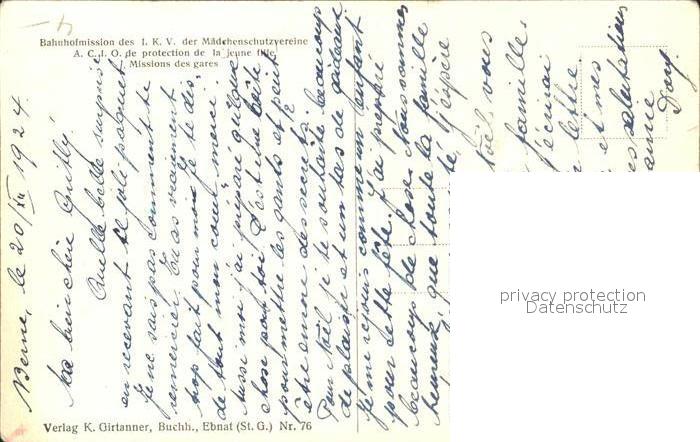 Bahnhofmission des I. K. V. der Mädchenschutzvereine
A. C. I. O. de protection de la jeune fille
Missions des gares
Berne, le 20/XII 1924.
Ma bien chère
Quelle belle surprise
en recevant ce joli paquet
Je ne sais pas comment te
remercier. Tu as vraiment
trop fait pour moi. Je te dis,
de tout mon cœur "merci".
Aussi moi j'ai pensé quelque
chose pour toi. C'est une boîte
pour mettre les gants et peut
être encore des secrets.
Pour Noël je te souhaite beaucoup
de plaisir et un tas de cadeaux
Je me réjouis comme un enfant
pour cette fête. J'ai préparé
beaucoup de chose. Nous sommes
heureux, que toute la famille
té, j'espère
Noël vous
famille.
J'écrirai
lettre.
et mes
es salutations
amie
privacy protection
Datenschutz
Verlag K. Girtanner, Buchh., Ebnat (St. G.) Nr. 76